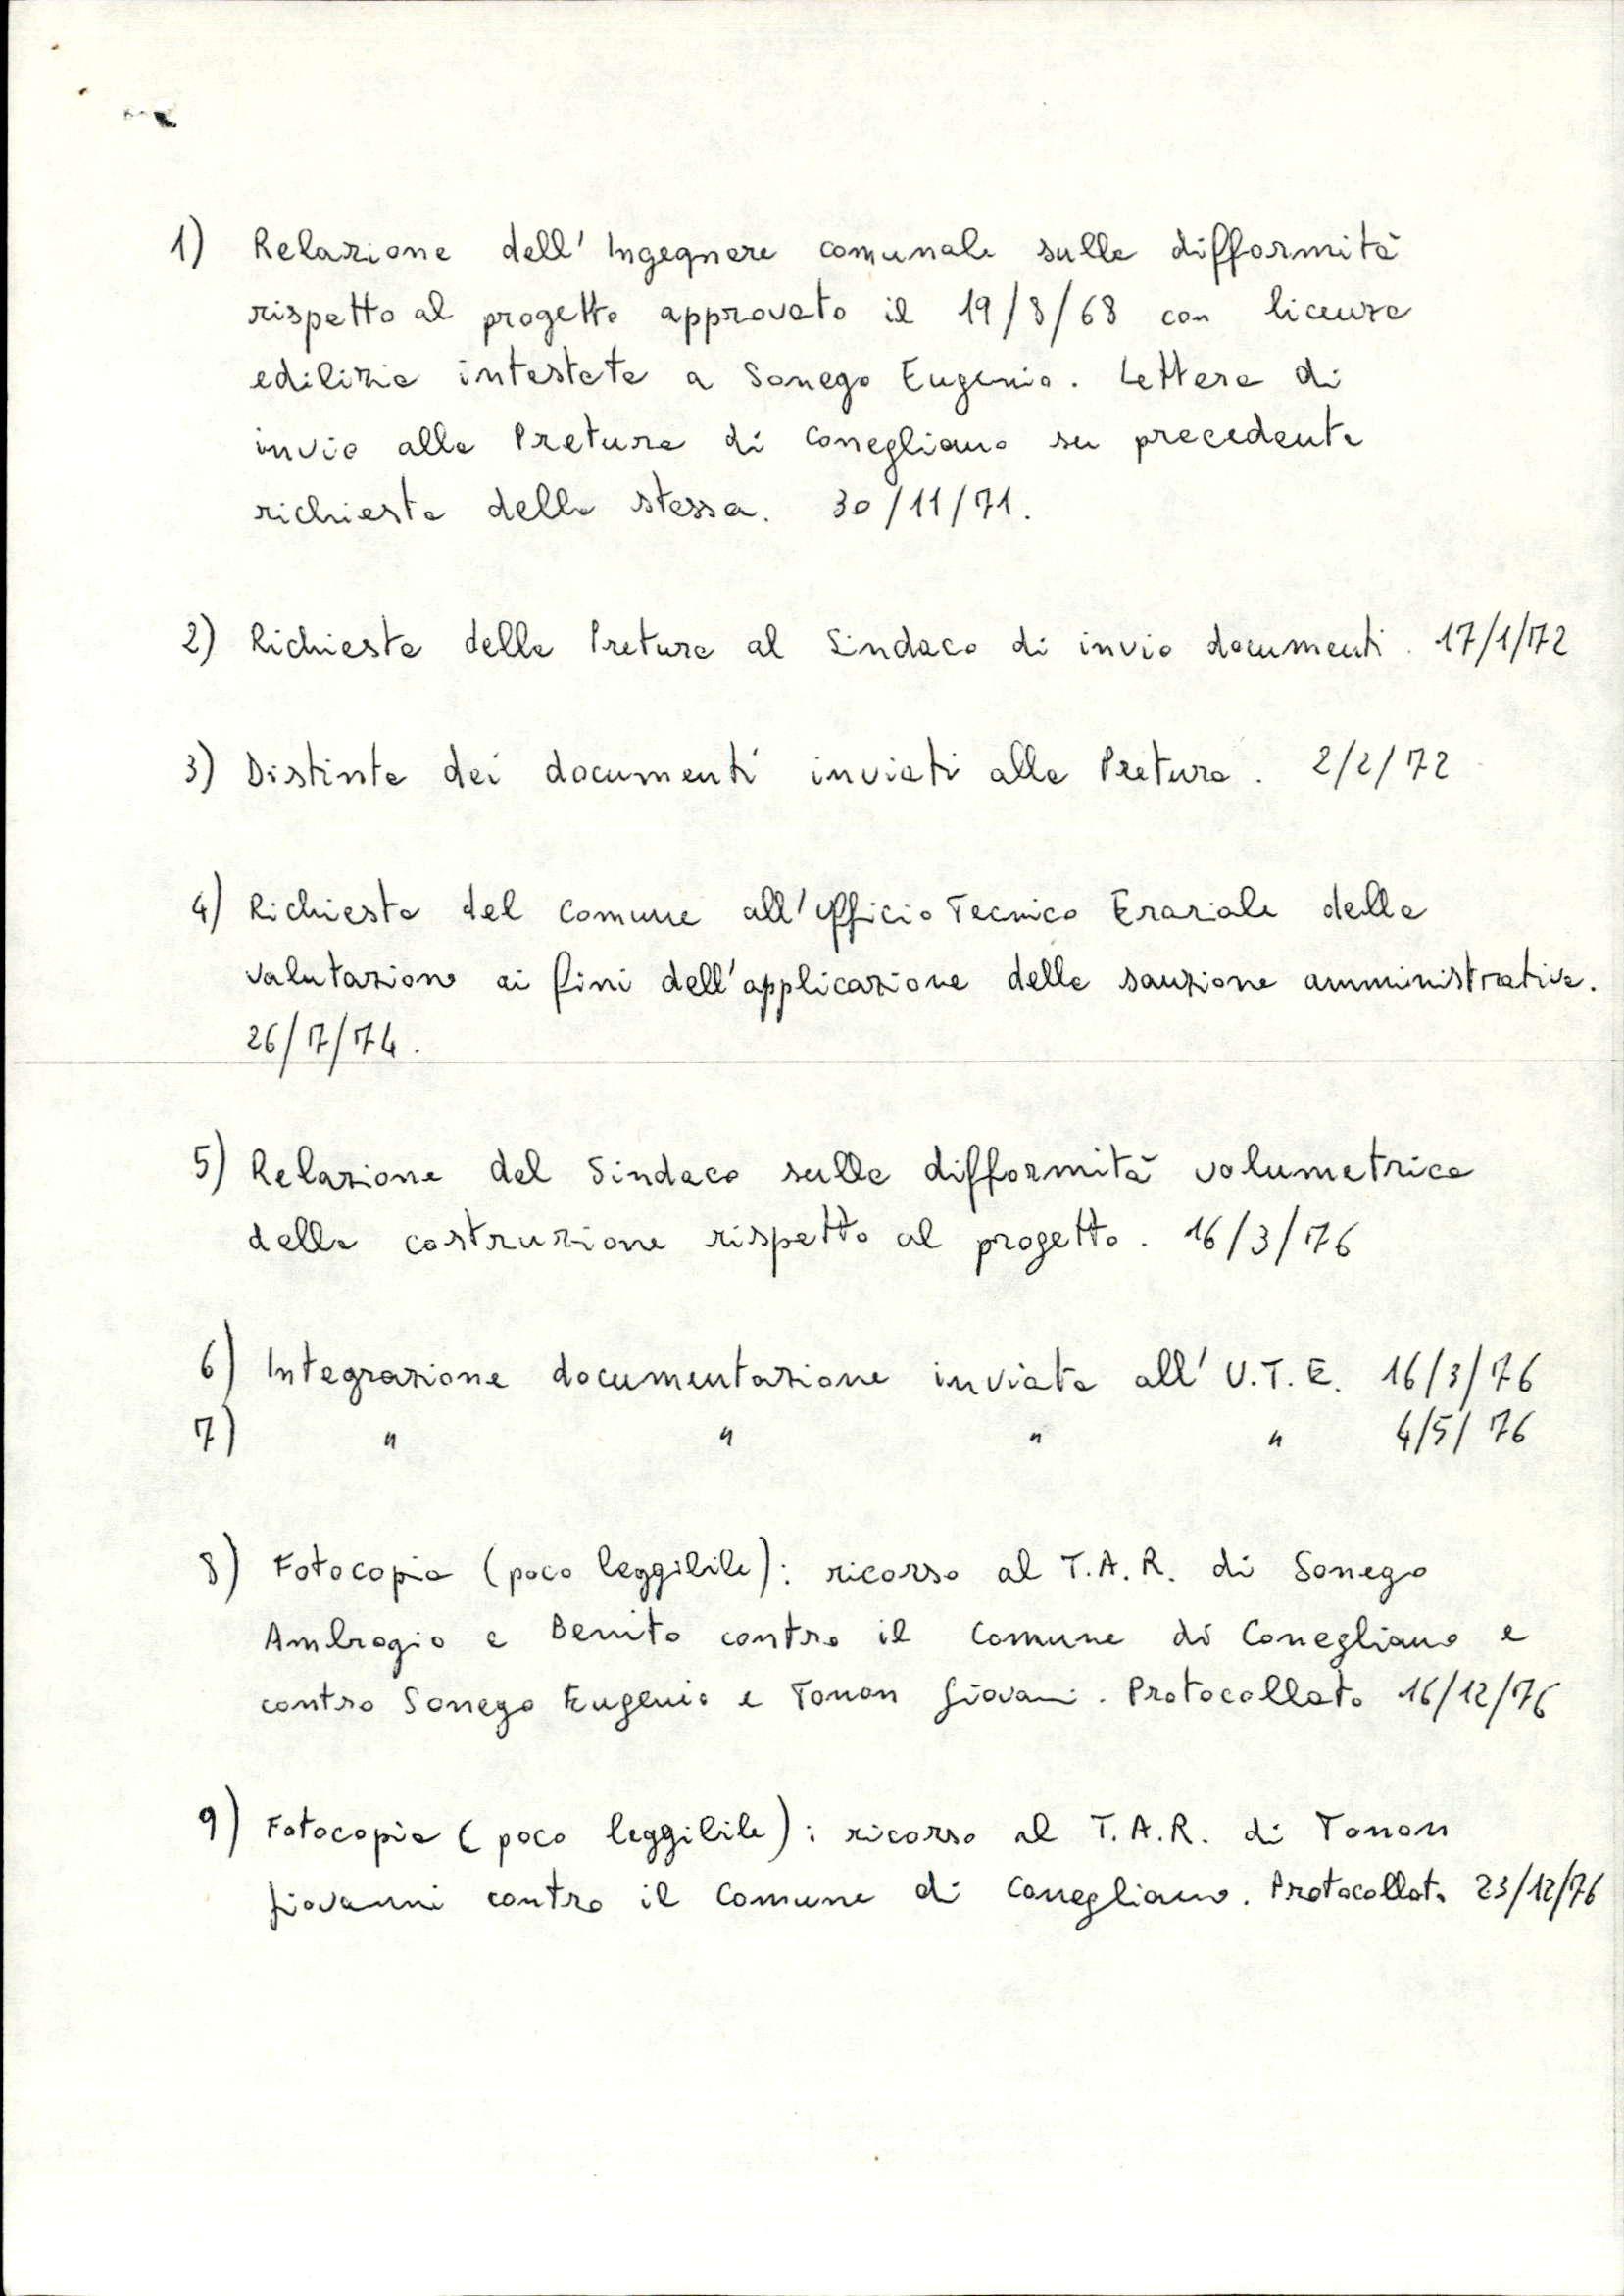 1) Relazione dell'Ingegnere comunale sulle difformità
rispetto al progetto approvato il 19/8/68 con licenza
edilizia intestata a Sonego Eugenio. Lettera di
invio alla Pretura di Conegliano su precedente
richiesta della stessa. 30/11/71.
2) Richiesta della Pretura al Sindaco di invio documenti. 17/1/72
3) Distinta dei documenti inviati alla Pretura. 2/2/72
4) Richiesta del Comune all'Ufficio Tecnico Erariale della
valutazione ai fini dell'applicazione della sanzione amministrativa.
26/7/74.
5) Relazione del Sindaco sulla difformità volumetrica
della costruzione rispetto al progetto. 16/3/76
6) Integrazione documentazione inviata all'U.T.E. 16/3/76
7) " " " " 4/5/76
8) Fotocopia (poco leggibile): ricorso al T.A.R. di Sonego
Ambrogio e Benito contro il Comune di Conegliano e
contro Sonego Eugenio e Tonon Giovani. Protocollato 16/12/76
9) Fotocopia (poco leggibile): ricorso al T.A.R. di Tonon
Giovanni contro il Comune di Conegliano. Protocollato 23/12/76